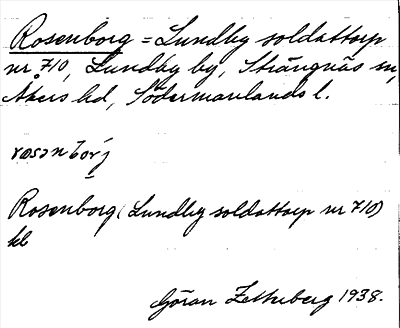 Rosenborg = Lundby soldattorp
nr 710, Lundby by, Strängnäs sn,
Åkers hd, Södermanlands l.
rosənbórj
Rosenborg (Lundby soldattorp nr 710)
kl
Göran Zetterberg 1938.